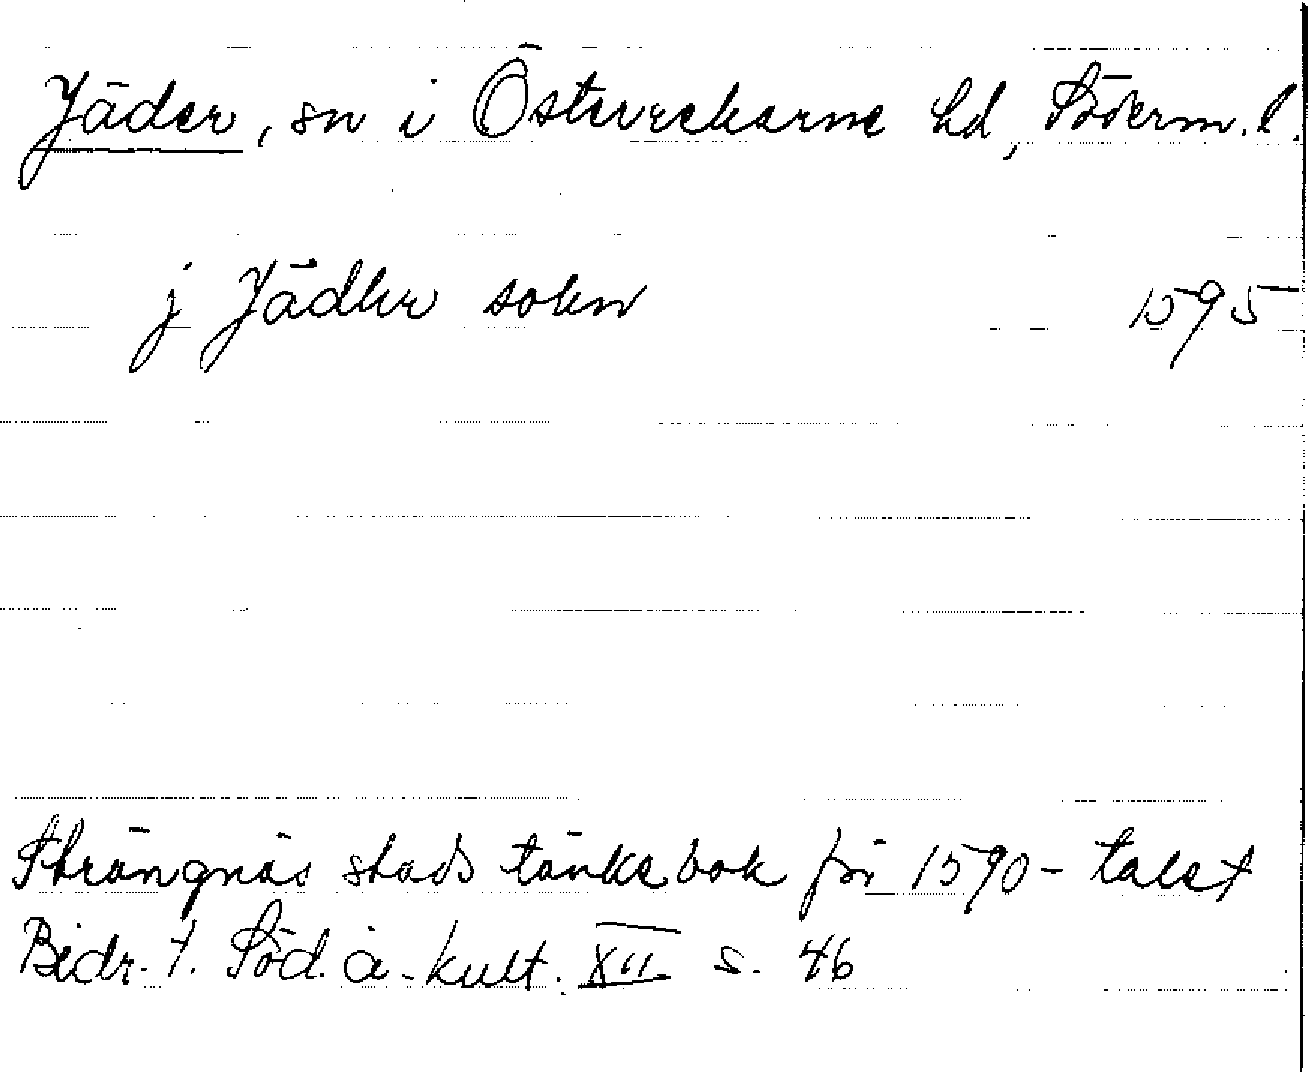 Jäder, sn i Österrekarne hd, Söderm. l.
j Jädher sokn 1595
Strängnäs stads tänkebok för 1590-talet
Bidr. t. Söd. ä. kult. XII s. 46